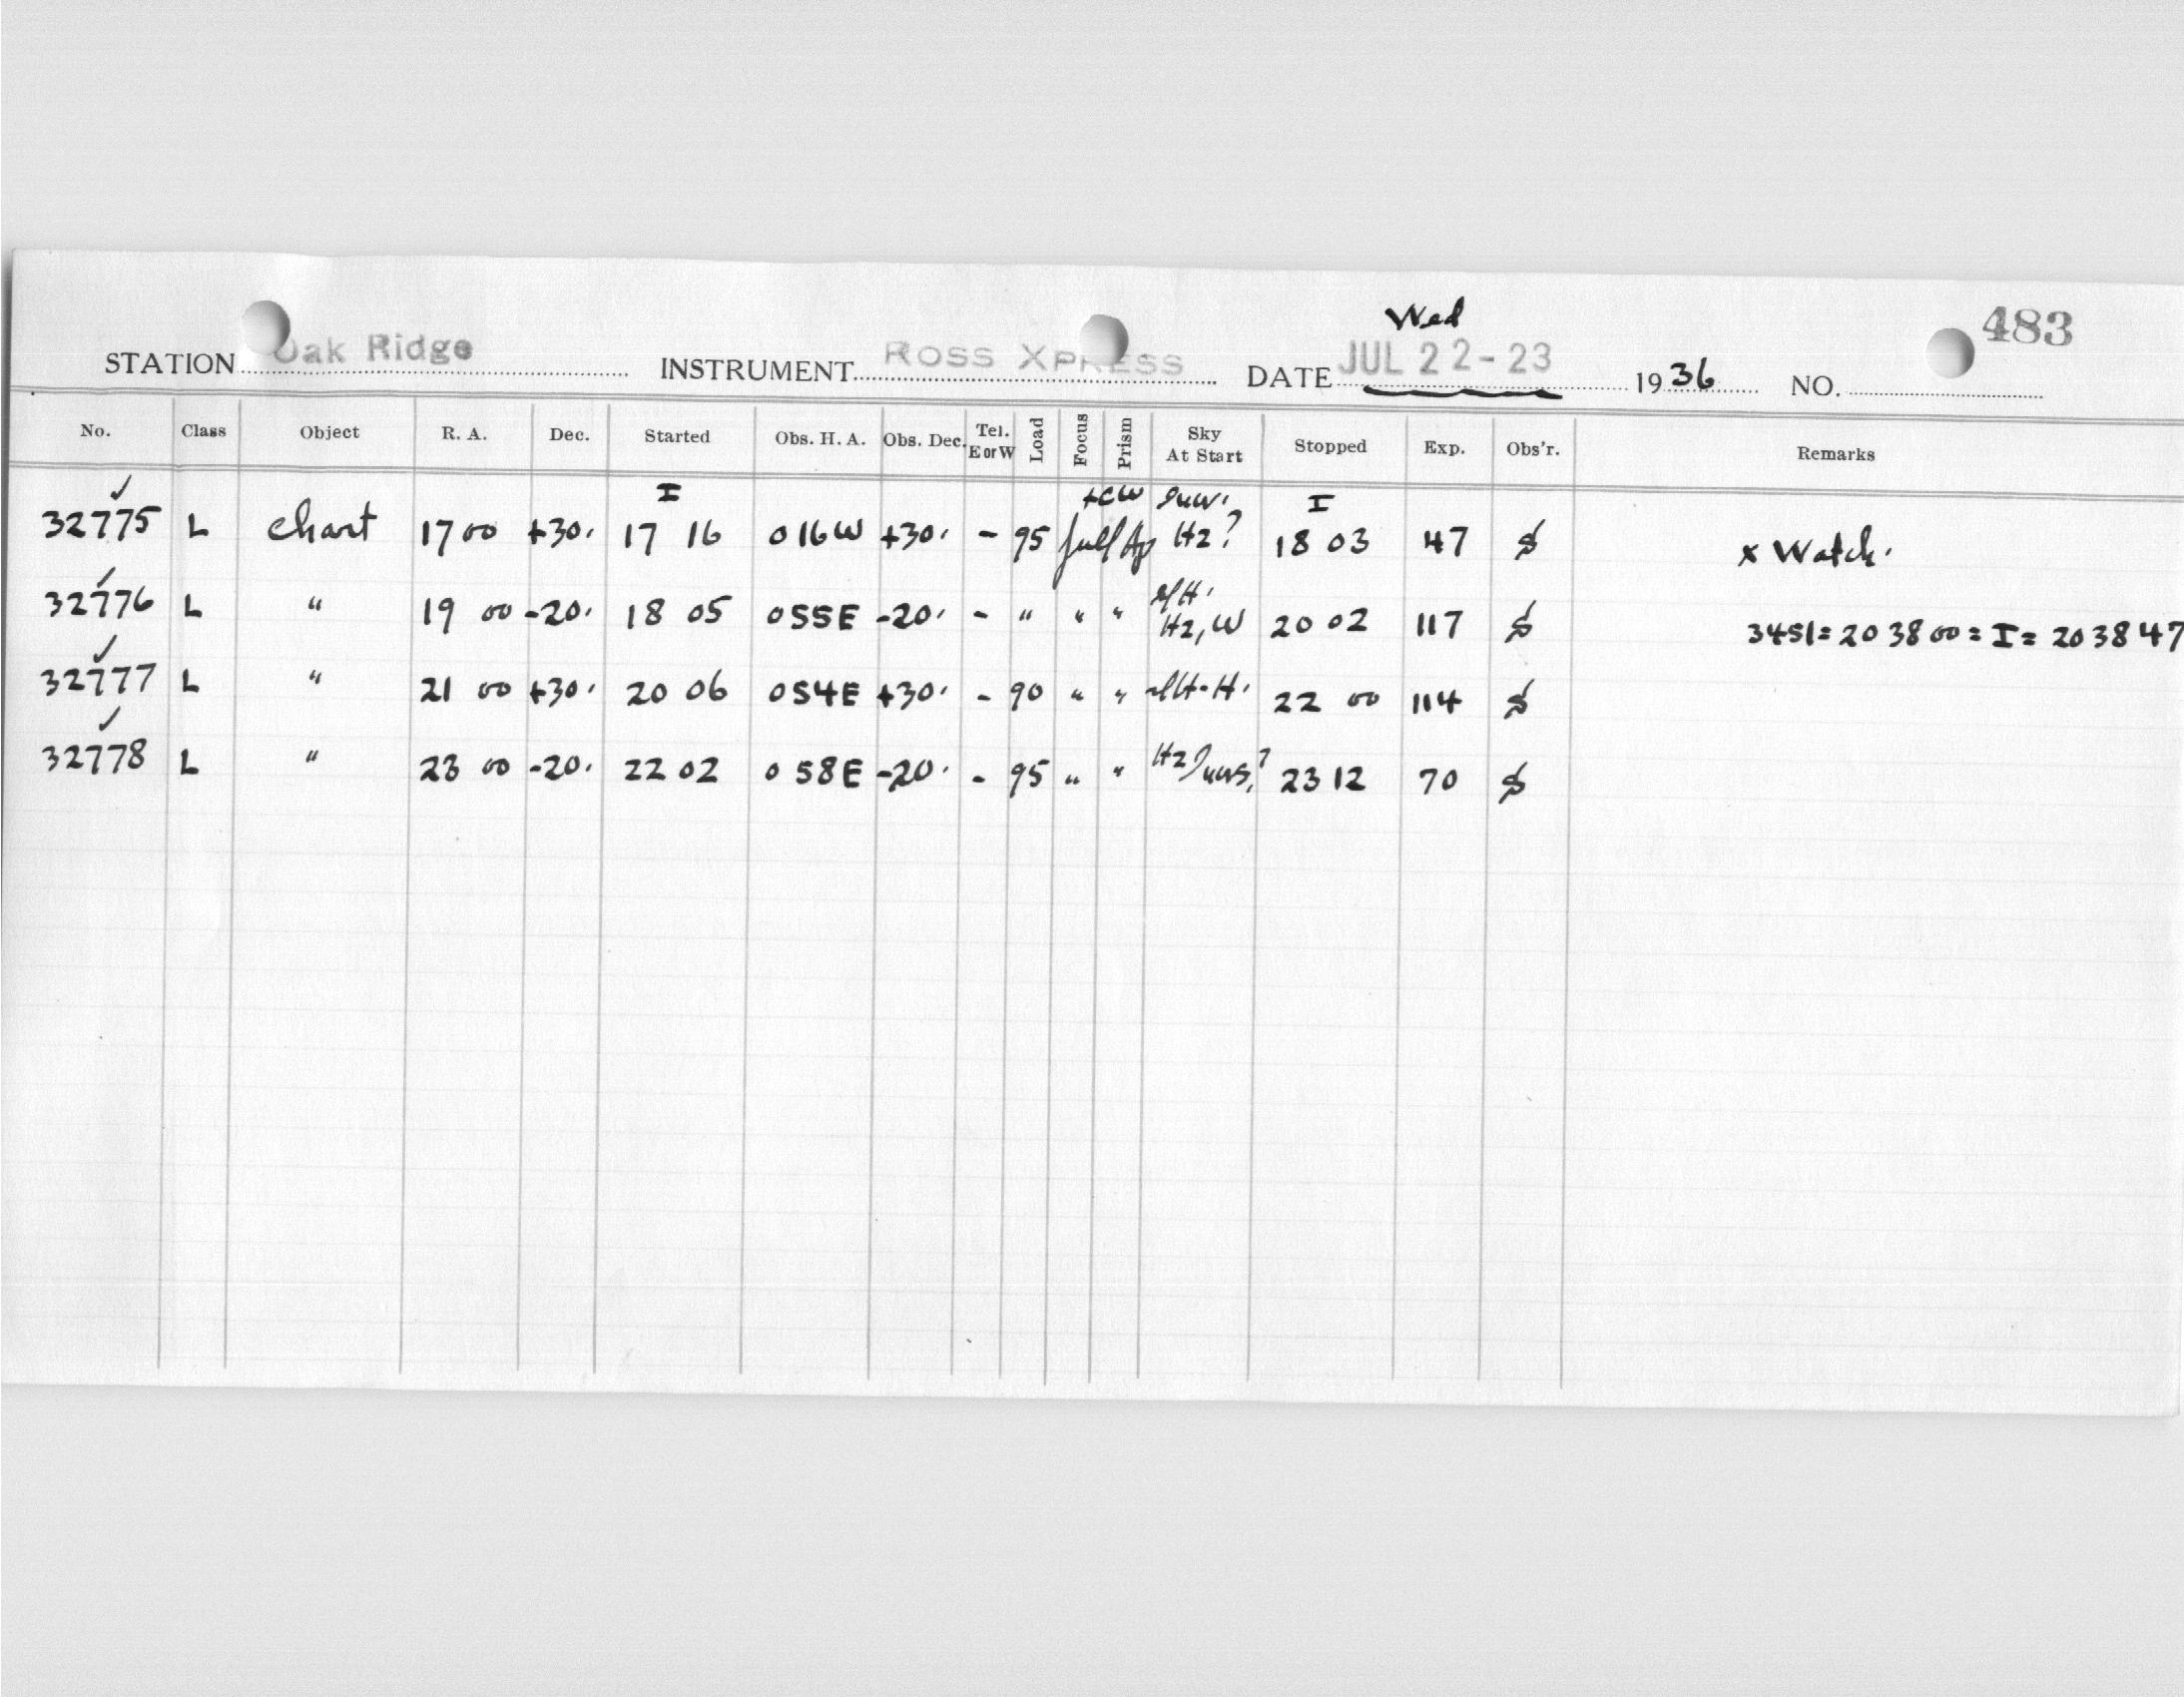 Wed
483
STATION Oak Ridge INSTRUMENT ROSS XPRESS DATE JUL 22-23 1936 NO.
No. Class Object R. A. Dec. Started Obs. H. A. Obs. Dec. Tel. E or W Load Focus Prism Sky At Start Stopped Exp. Obs'r. Remarks
I I
32775 L Chart 17 00 +30. 17 16 0 16 W +30. - 95 full Ap Hz? 18 03 47 x Watch.
32776 L " 19 00 -20. 18 05 0 55 E -20. - " " " Hz, W 20 02 117 3451 = 20 38 00 = I = 20 38 47
32777 L " 21 00 +30. 20 06 0 54 E +30. - 90 " " 22 00 114
32778 L " 23 00 -20. 22 02 0 58 E -20. - 95 " " Hz 23 12 70